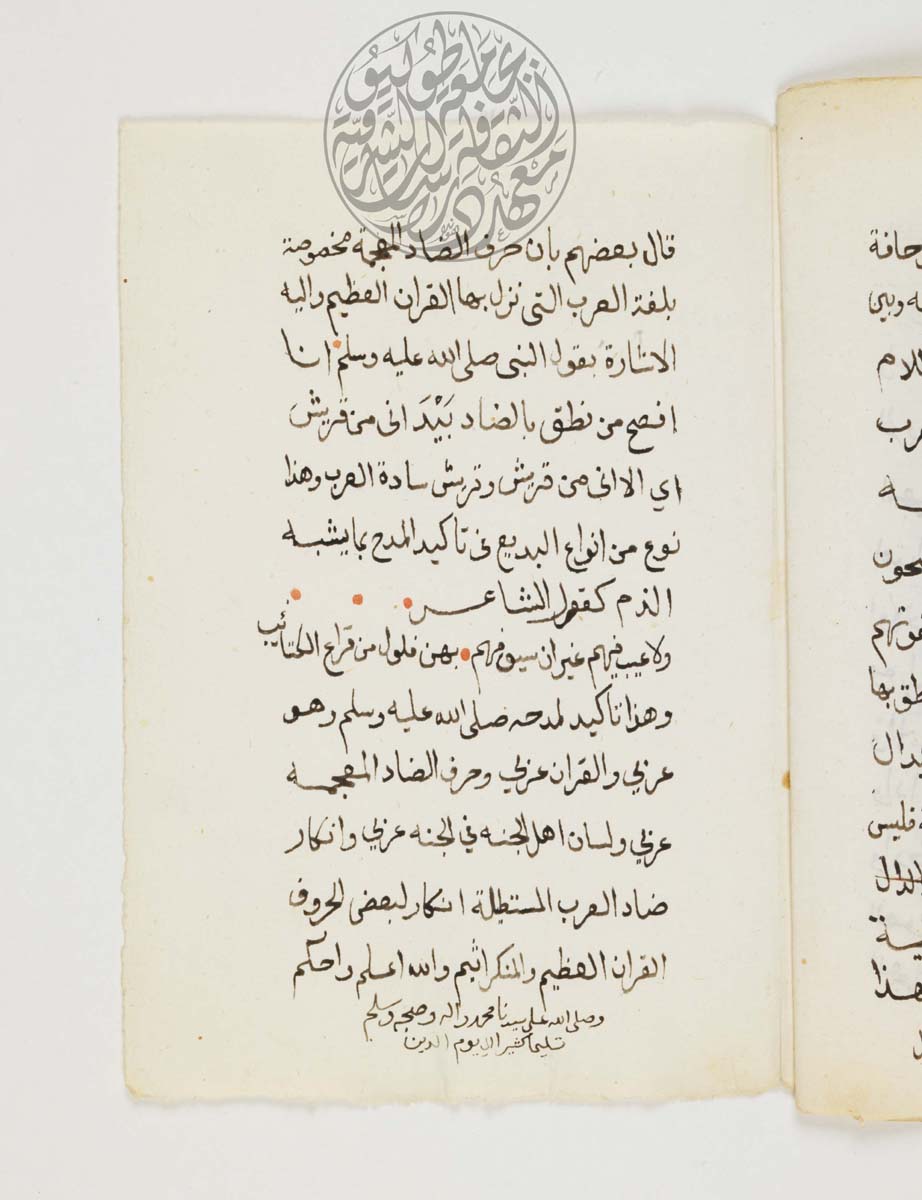 جامعة طوكيو
معهد دراسات الثقافة الشرقية
قال بعضهم بان حرف الضاد المعجمة مخصوصة
بلغة العرب التى نزل بها القران العظيم واليه
الاشارة بقول النبى صلى الله عليه وسلم انا
افصح من نطق بالضاد بَيْدَ انى من قريش
اي الا انى من قريش وقريش سادة العرب وهذا
نوع من انواع البديع فى تاكيد المدح بما يشبه
الذم كقول الشاعر
ولا عيب فيهم غير ان سيوفهم بهن فلول من قراع الكتائب
وهذا تاكيد لمدحه صلى الله عليه وسلم وهو
عربي والقران عربي وحرف الضاد المعجمه
عربي ولسان اهل الجنه في الجنه عربي وانكار
ضاد العرب المستطلة انكار لبعض الحروف
القران العظيم والمنكر اثيم والله اعلم واحكم
وصلى الله على سيدنا محمد واله وصحبه وسلم
تسليما كثيرا الى يوم الدين
وحافة
وبين
لام
رب
حون
طق بها
دال
فليس
الدال
هذا